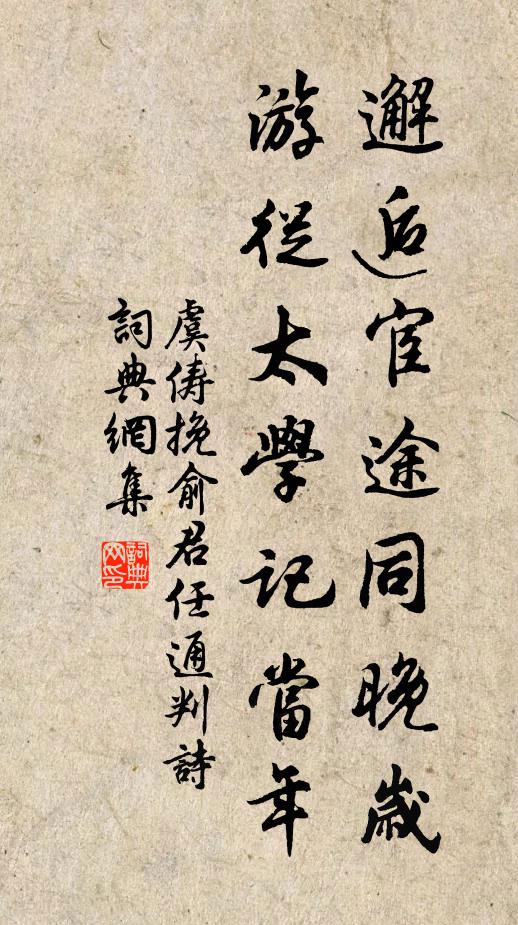 邂逅宦途同晚歲
游從太學記當年
虞儔挽俞君任通判詩
詞典網集
詞典網印